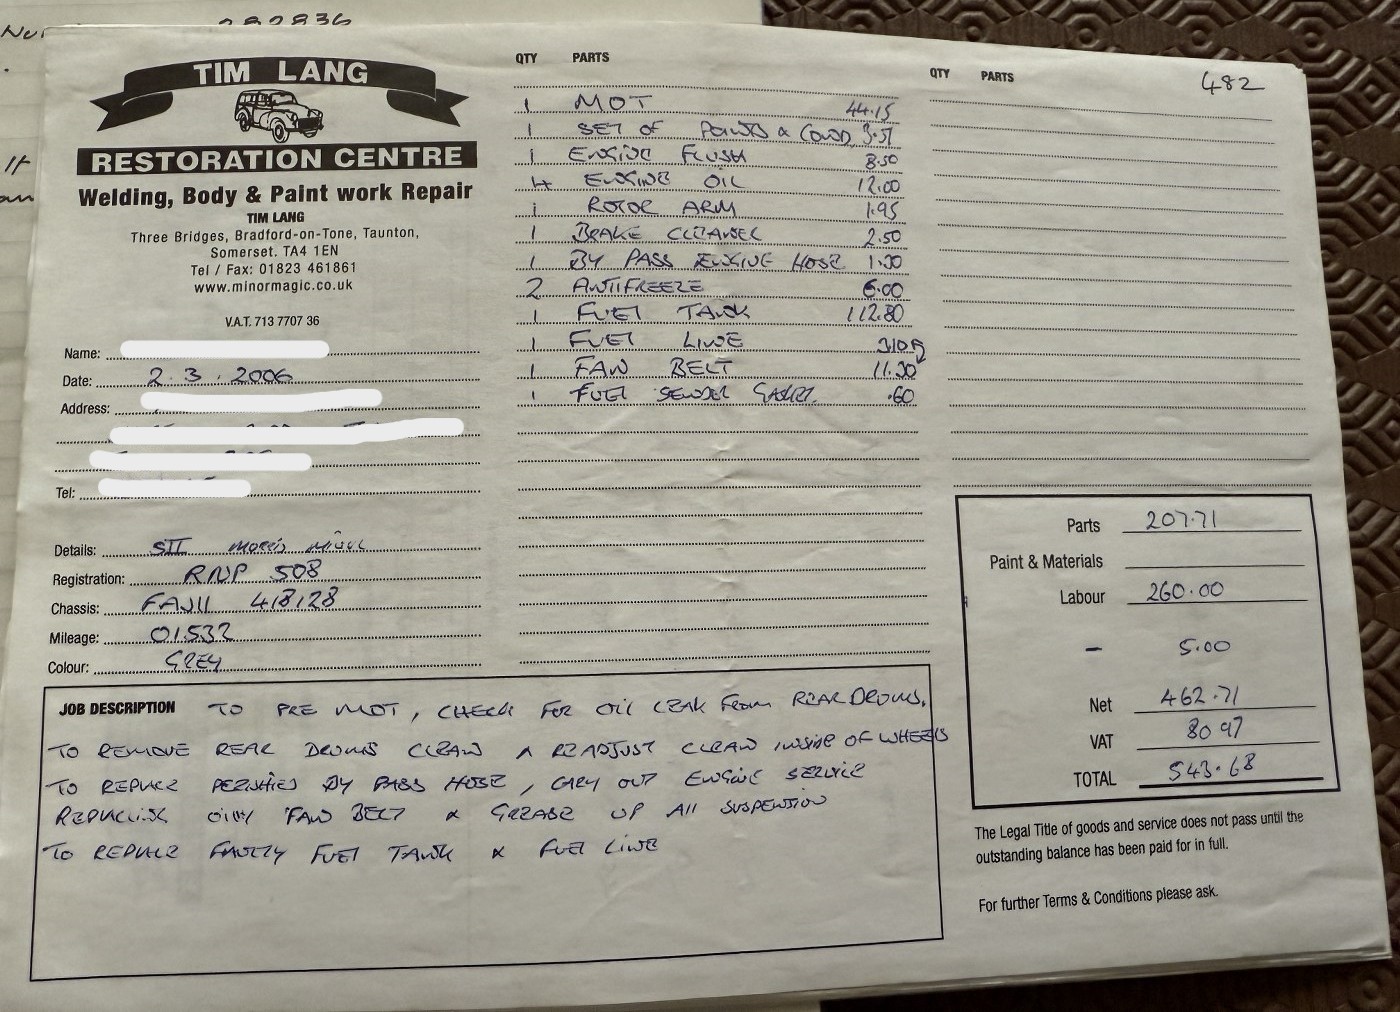 282836
It
TIM LANG
RESTORATION CENTRE
Welding, Body & Paint work Repair
TIM LANG
Three Bridges, Bradford-on-Tone, Taunton,
Somerset. TA4 1EN
Tel / Fax: 01823 461861
www.minormagic.co.uk
V.A.T. 713 7707 36
Name:
Date: 2.3.2006
Address:
Tel:
Details: SII MORRIS MINOR
Registration: RNP 508
Chassis: FAJII 418128
Mileage: 01532
Colour: GREY
QTY PARTS
1 MOT 44.15
1 SET OF POINTS & COND
1 ENGINE FLUSH 8.50
4 ENGINE OIL 12.00
1 ROTOR ARM 1.95
1 BRAKE CLEANER 2.50
1 BY PASS ENGINE HOSE
2 ANTIFREEZE 6.00
1 FUEL TANK 112.80
1 FUEL LINE
1 FAN BELT
1 FUEL SENDER GASKET .60
QTY PARTS
482
Parts 207.71
Paint & Materials
Labour 260.00
– 5.00
Net 462.71
VAT 80 97
TOTAL 543.68
JOB DESCRIPTION TO PRE MOT, CHECK FOR OIL LEAK FROM REAR DRUMS.
TO REMOVE REAR DRUMS CLEAN & READJUST CLEAN INSIDE OF WHEELS
TO REPLACE PERISHED BY PASS HOSE, CARY OUT ENGINE SERVICE
REPLACING OILY FAN BELT & GREASE UP ALL SUSPENSION
TO REPLACE FAULTY FUEL TANK & FUEL LINE
The Legal Title of goods and service does not pass until the
outstanding balance has been paid for in full.
For further Terms & Conditions please ask.